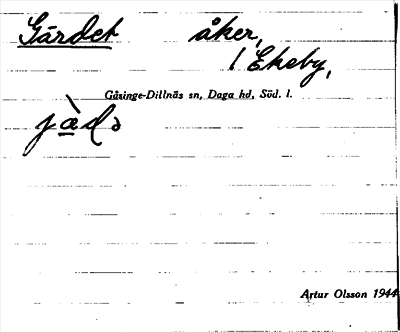 Gärdet åker,
1 Ekeby,
Gåsinge-Dillnäs sn, Daga hd, Söd. l.
jàḍə
Artur Olsson 1944